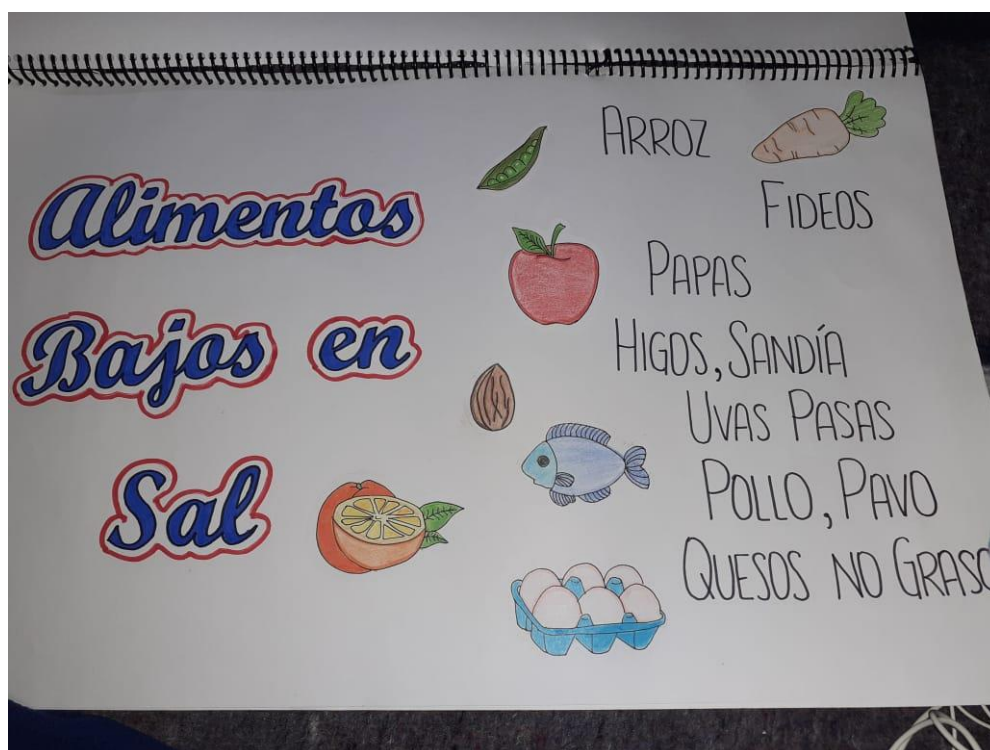 Alimentos
Bajos en
Sal
ARROZ
FIDEOS
PAPAS
HIGOS, SANDÍA
UVAS PASAS
POLLO, PAVO
QUESOS NO